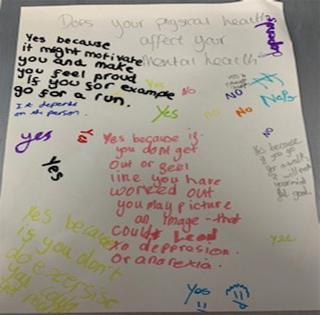 Does your physical health
affect your
mental health
depends
Yes because
it might motivate
you and make
you feel proud
Is you for example
go for a run.
Yes
No
NO
Yes
no
NO
It depends
on the person.
yes
Yes
yes
NO
Yes because if
you dont get
out or feel
like you have
worked out
you may picture
an image - that
could lead
to depression.
or anorexia.
Yes because
if you go
for a walk
it will
your mind
feel good.
Yes because
is you don't
do exercise
yes
Yes